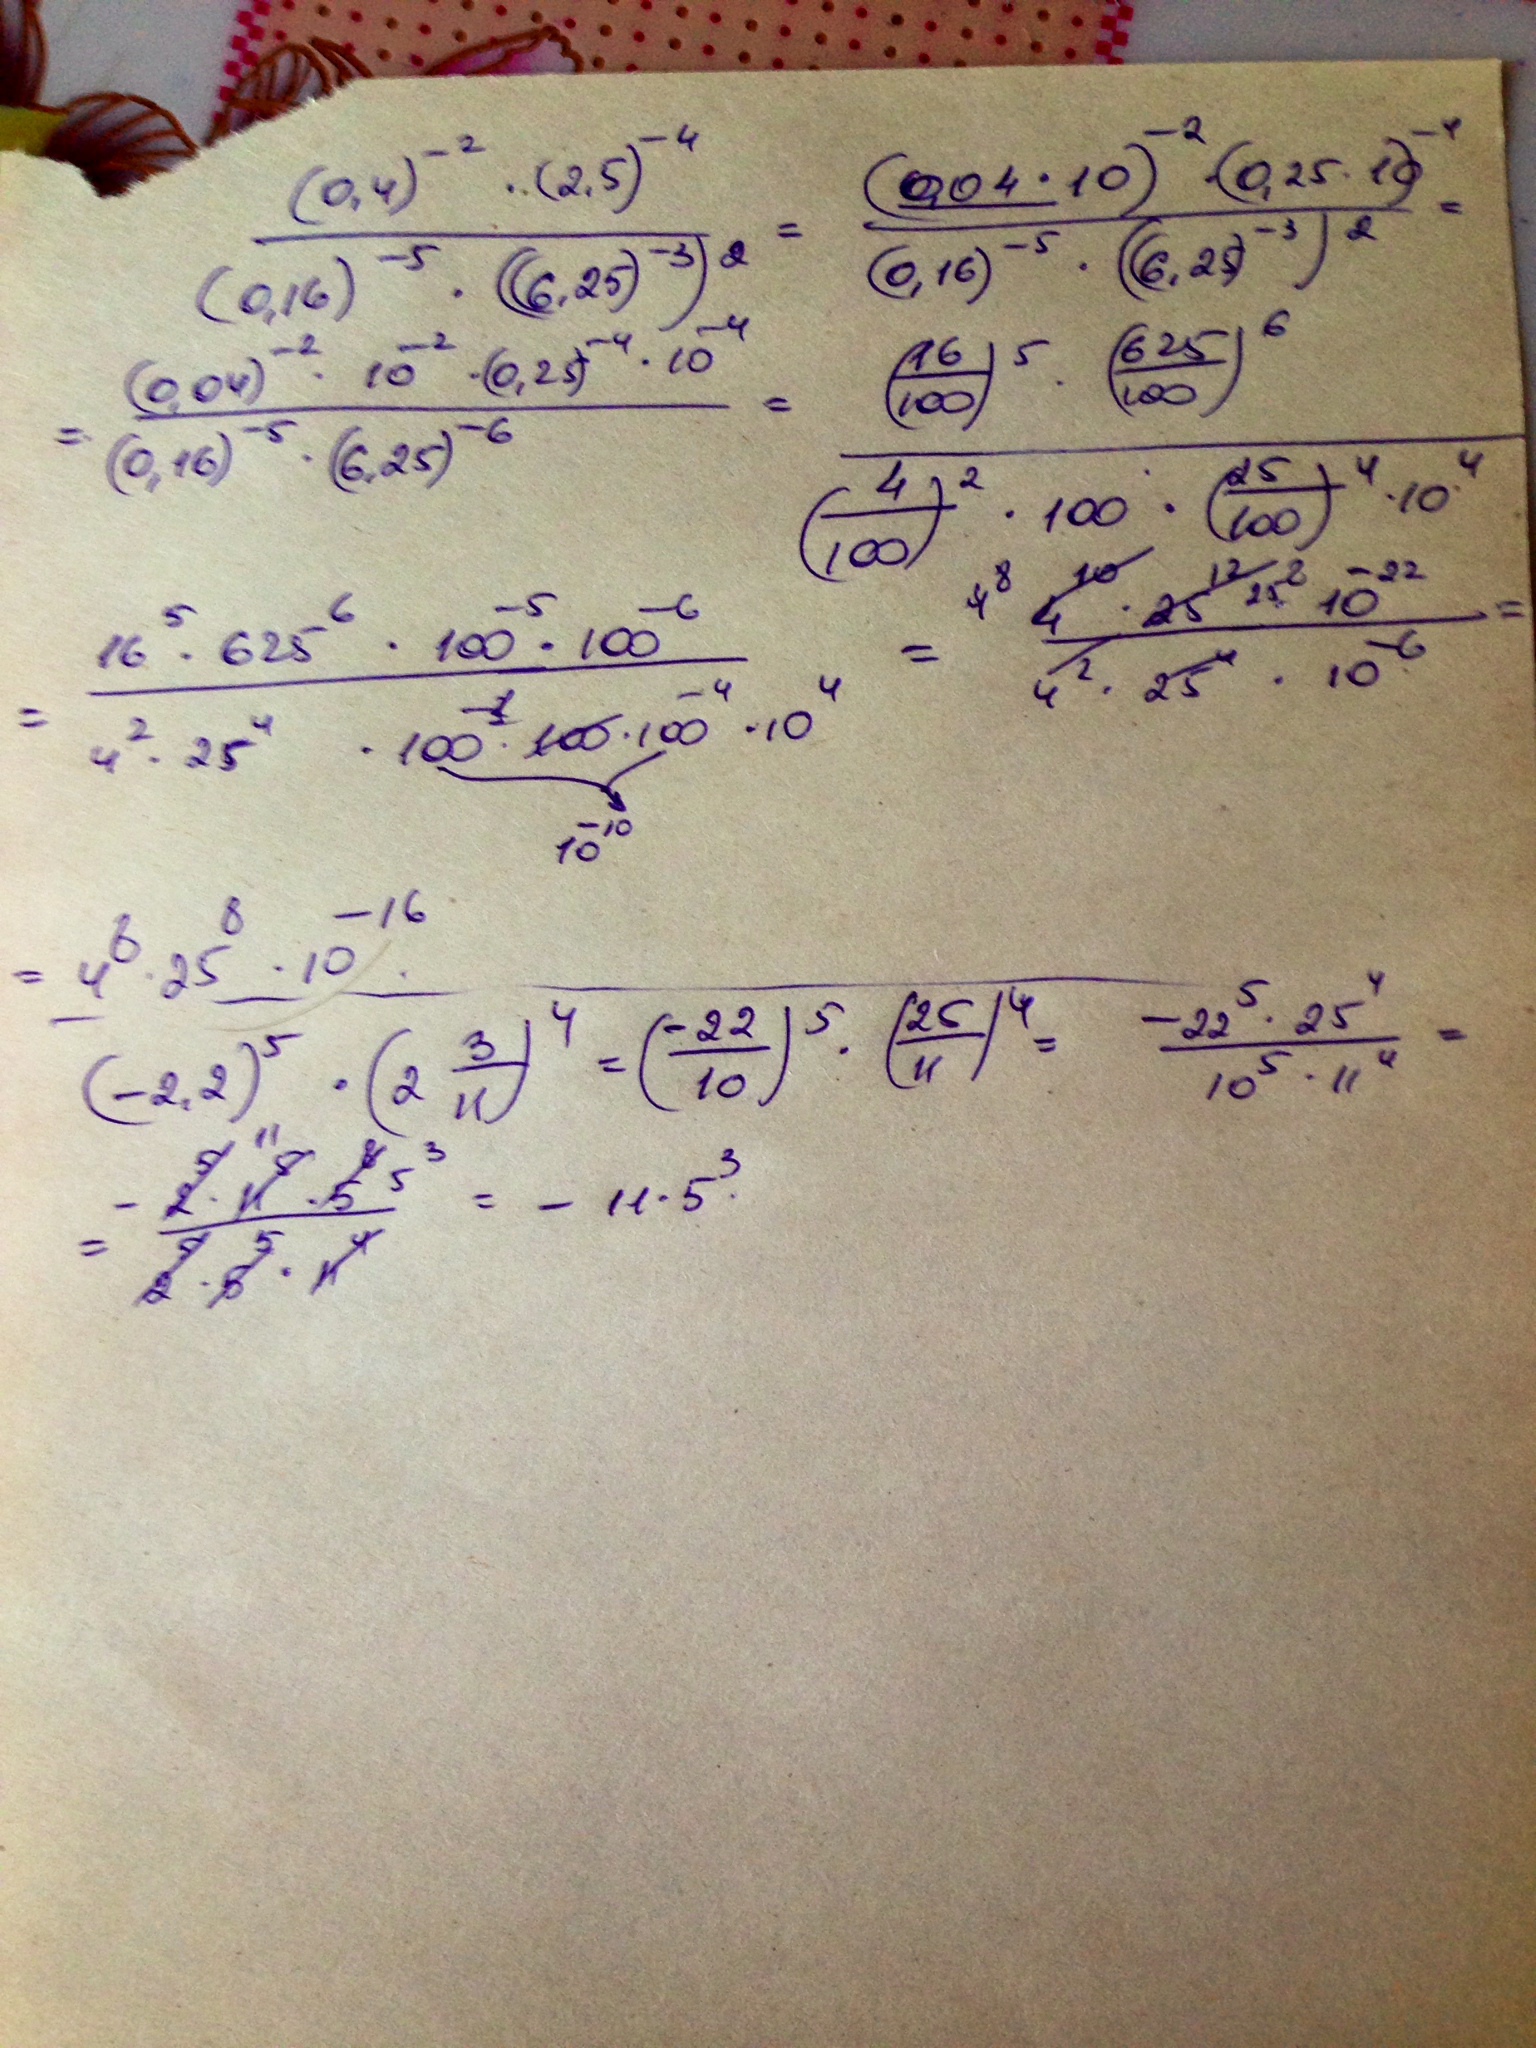 (0,4)^{-2} · (2,5)^{-4} / (0,16)^{-5} · ((6,25)^{-3})^2 = (0,04 · 10)^{-2} · (0,25 · 10)^{-4} / (0,16)^{-5} · ((6,25)^{-3})^2 =
= (0,04)^{-2} · 10^{-2} · (0,25)^{-4} · 10^{-4} / (0,16)^{-5} · (6,25)^{-6} = (16/100)^5 · (625/100)^6 / (4/100)^2 · 100 · (25/100)^4 · 10^4
= 16^5 · 625^6 · 100^{-5} · 100^{-6} / 4^2 · 25^4 · 100^{-1} · 100 · 100^{-4} · 10^4 = 4^8 4^{10} · 25^{12} 25^8 10^{-22} / 4^2 · 25^4 · 10^{-6} =
10^{-10}
= 4^8 · 25^8 · 10^{-16}
(-2,2)^5 · (2 3/11)^4 = (-22/10)^5 · (25/11)^4 = -22^5 · 25^4 / 10^5 · 11^4 =
= - 2^5 · 11^5 11 · 5^8 5^3 / 2^5 · 5^5 · 11^4 = - 11 · 5^3.